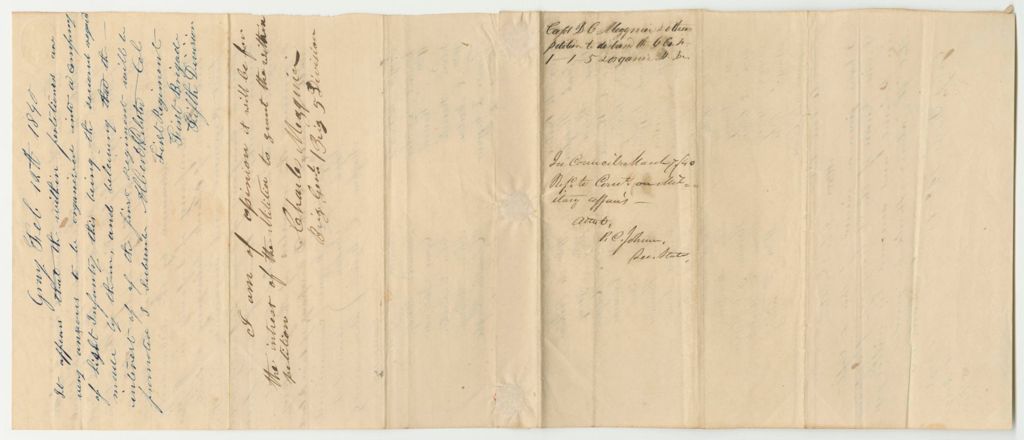 Gray Feb. 12th 1840
It appears that the within petitioners are
very anxious to be organized into a company
of Light Infantry this being the second request
made by them, and believing that the
interest of the first regiment will be
promoted I Subscribe Col
First Regiment
First Brigade
Fifth Division
I am of opinion it will be for
the intrest of the Militia to grant the within
petition
Charles Megquier
Brig Genl 1 Brig 5 Division
Capt D C Megquier & others
petition to disband the C Co
1-1-5 & organize
In Council March 7, 40
Refd. to Comte. on Mil-
itary affairs
Attest,
P. C. Johnson,
Sec. State.